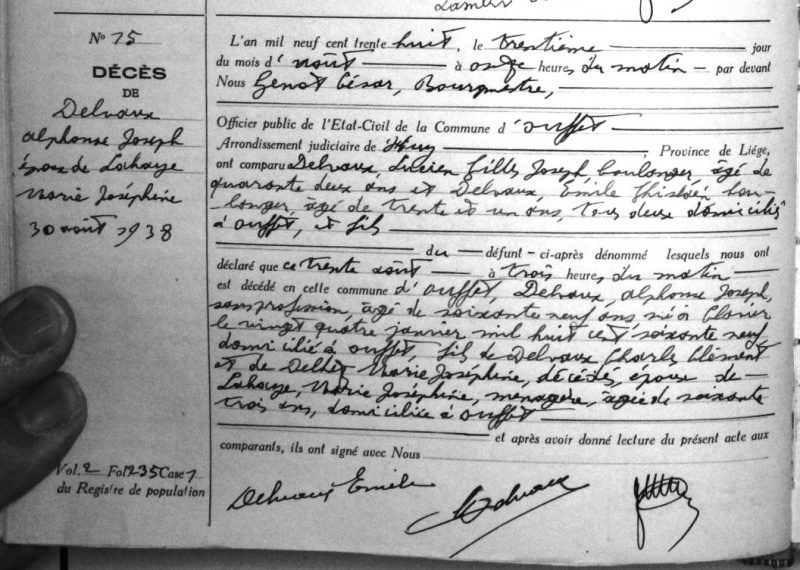 Nº 75
DÉCÈS
DE
Delvaux
Alphonse Joseph
époux de Lahaye
Marie Joséphine
30 août 1938
Vol. 2 Fol 235 Case 1
du Registre de population
L'an mil neuf cent trente huit, le trentième jour
du mois d'août à onze heures, du matin par devant
Nous Genot César, Bourgmestre,
Officier public de l'Etat-Civil de la Commune d'Ouffet
Arrondissement judiciaire de Huy, Province de Liége,
ont comparu Delvaux, Lucien Gilles Joseph boulanger, âgé de
quarante deux ans et Delvaux, Emile Ghislain bou-
langer, âgé de trente et un ans, tous deux domiciliés
à Ouffet, et fils
du défunt - ci-après dénommé lesquels nous ont
déclaré que ce trente août à trois heures, du matin
est décédé en cette commune d'Ouffet, Delvaux, Alphonse Joseph,
sans profession, âgé de soixante neuf ans né à Clavier
le vingt quatre janvier mil huit cent soixante neuf,
domicilié à Ouffet, fils de Delvaux Charles Clément
et de Marie Joséphine, décédés, époux de
Lahaye, Marie Joséphine, ménagère, âgée de soixante
trois ans, domiciliée à Ouffet
et après avoir donné lecture du présent acte aux
comparants, ils ont signé avec Nous
Delvaux Emile Delvaux